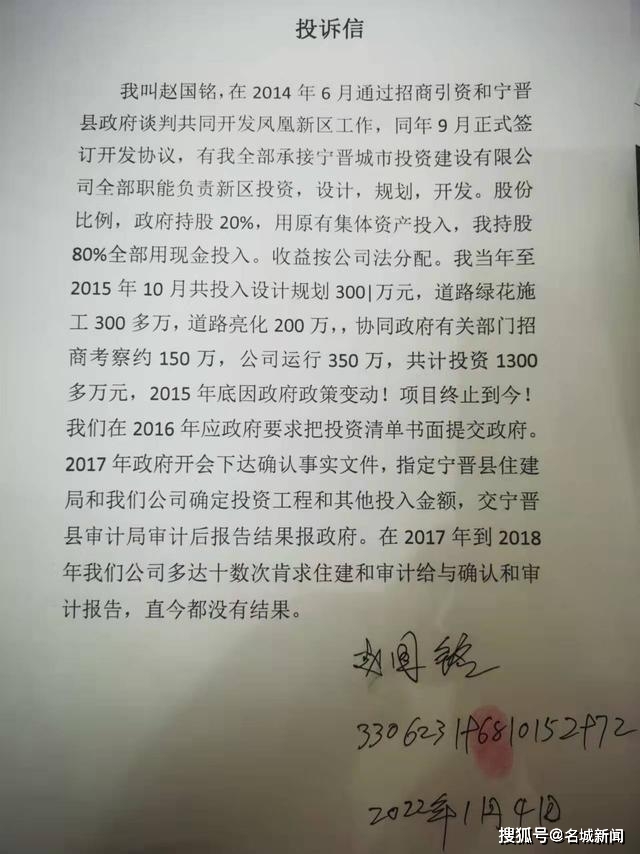 投诉信
我叫赵国铭，在 2014 年 6 月通过招商引资和宁晋
县政府谈判共同开发凤凰新区工作，同年 9 月正式签
订开发协议，有我全部承接宁晋城市投资建设有限公
司全部职能负责新区投资，设计，规划，开发。股份
比例，政府持股 20%，用原有集体资产投入，我持股
80%全部用现金投入。收益按公司法分配。我当年至
2015 年 10 月共投入设计规划 300|万元，道路绿花施
工 300 多万，道路亮化 200 万，，协同政府有关部门招
商考察约 150 万，公司运行 350 万，共计投资 1300
多万元，2015 年底因政府政策变动！项目终止到今！
我们在 2016 年应政府要求把投资清单书面提交政府。
2017 年政府开会下达确认事实文件，指定宁晋县住建
局和我们公司确定投资工程和其他投入金额，交宁晋
县审计局审计后报告结果报政府。在 2017 年到 2018
年我们公司多达十数次肯求住建和审计给与确认和审
计报告，直今都没有结果。
赵国铭
2022年1月4日
搜狐号@名城新闻